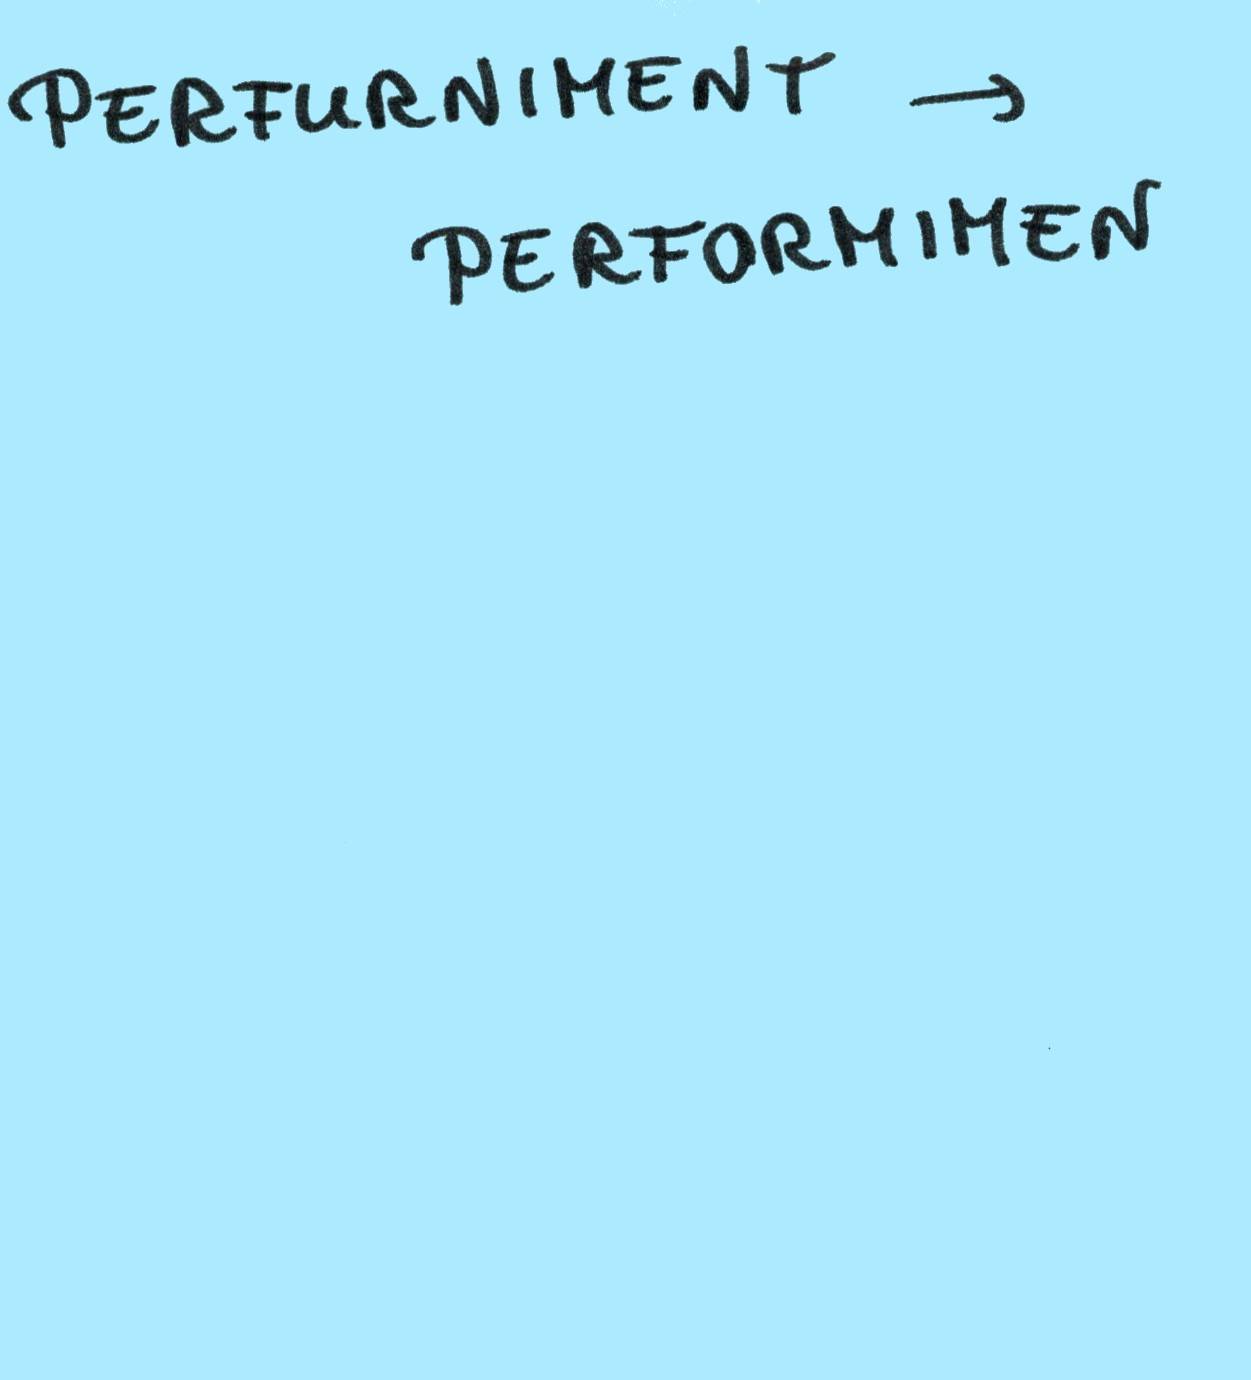 PERFURNIMENT →
PERFORMIMEN